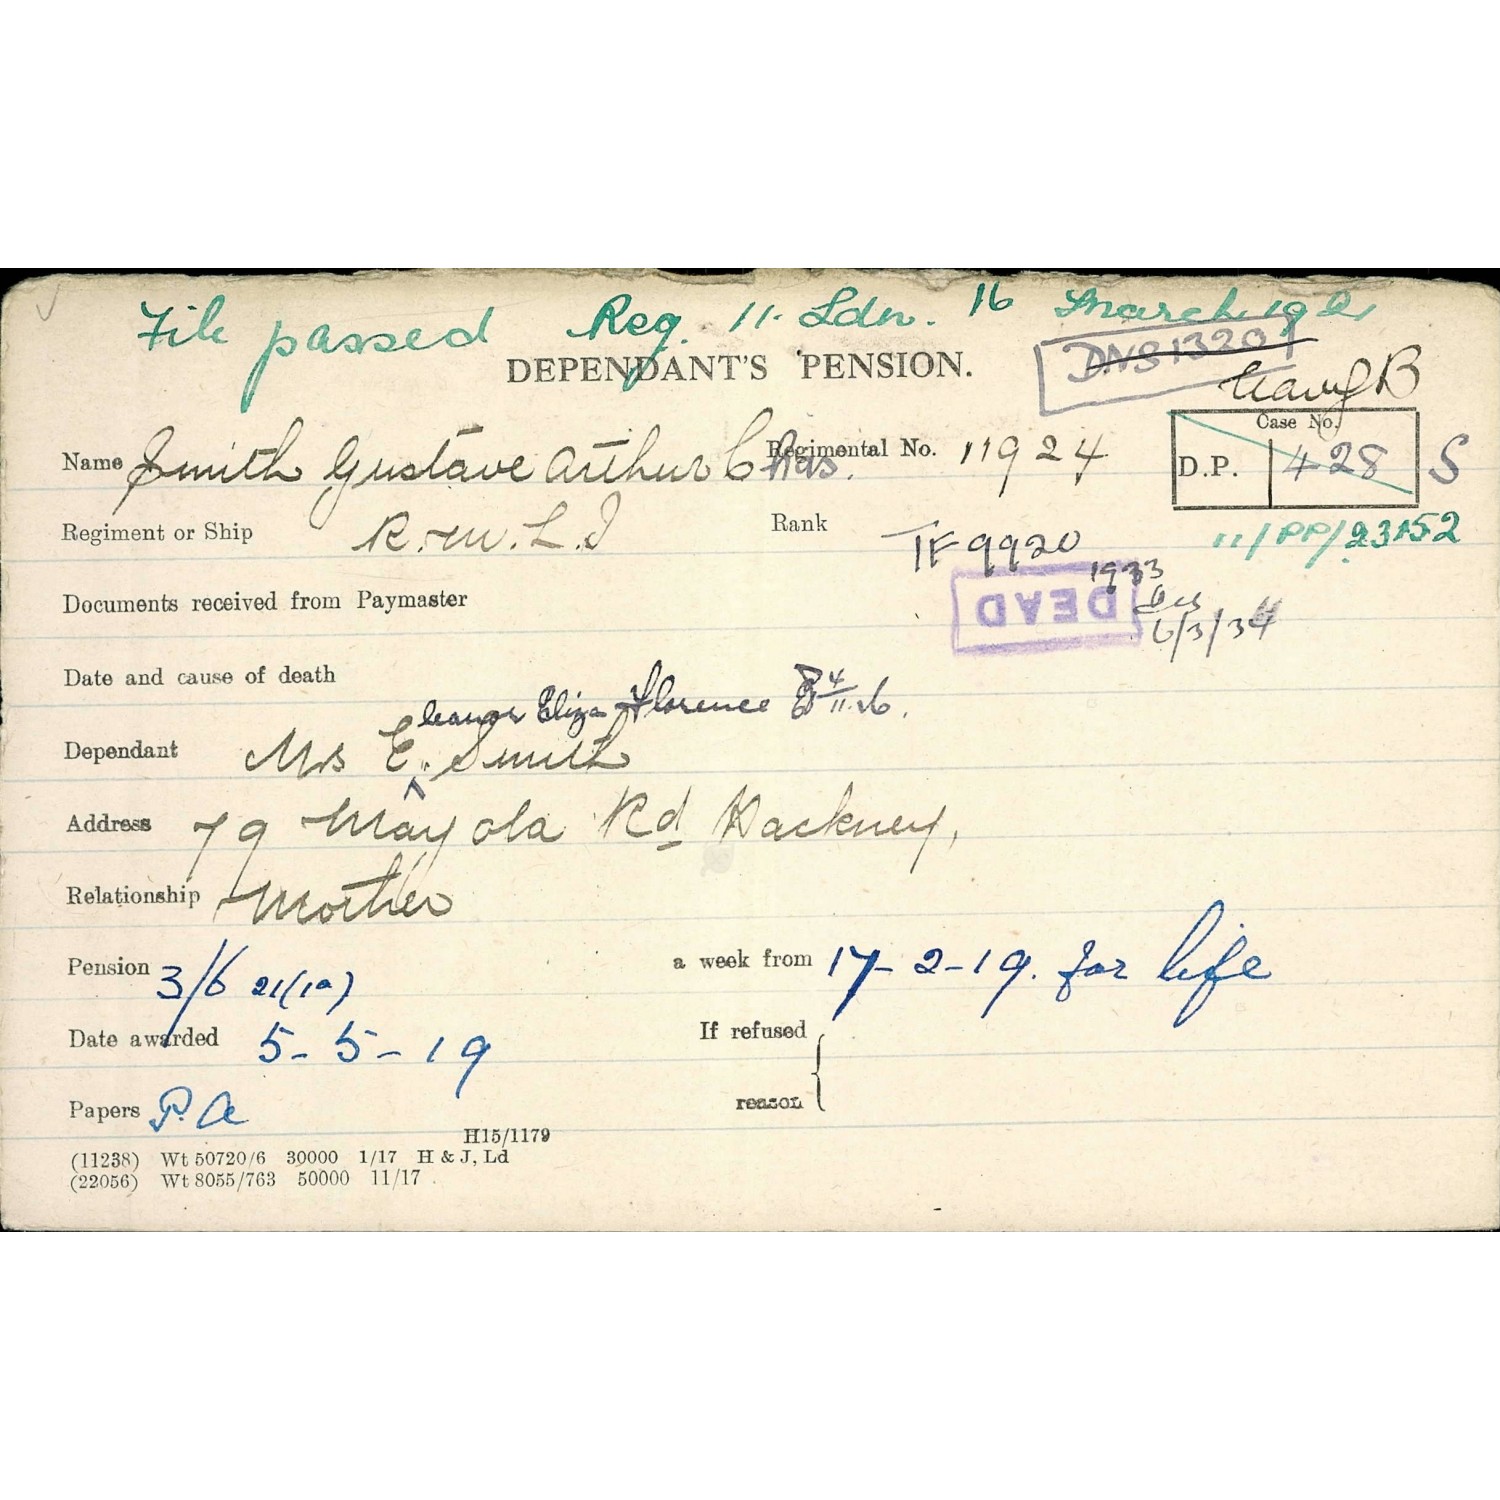 File passed Reg. 11. Ldn. 16 March 1921
DNS 13207
DEPENDANT'S PENSION.
Navy B
Case No.
Name Smith Gustave Arthur Chas. Regimental No. 11924 D.P. 428 S
Regiment or Ship R.M.L.I Rank TF 9920 11/PP/23152
Documents received from Paymaster DEAD 1933
6/3/34
Date and cause of death
leanor Eliza Florence 4/11.26.
Dependant Mrs E. Smith
Address 79 Mayola Rd Hackney,
Relationship Mother
Pension 3/6 21(1a) a week from 17-2-19. for life
Date awarded 5-5-19 If refused
Papers P.A reason
H15/1179
(11238) Wt 50720/6 30000 1/17 H & J, Ld
(22056) Wt 8055/763 50000 11/17